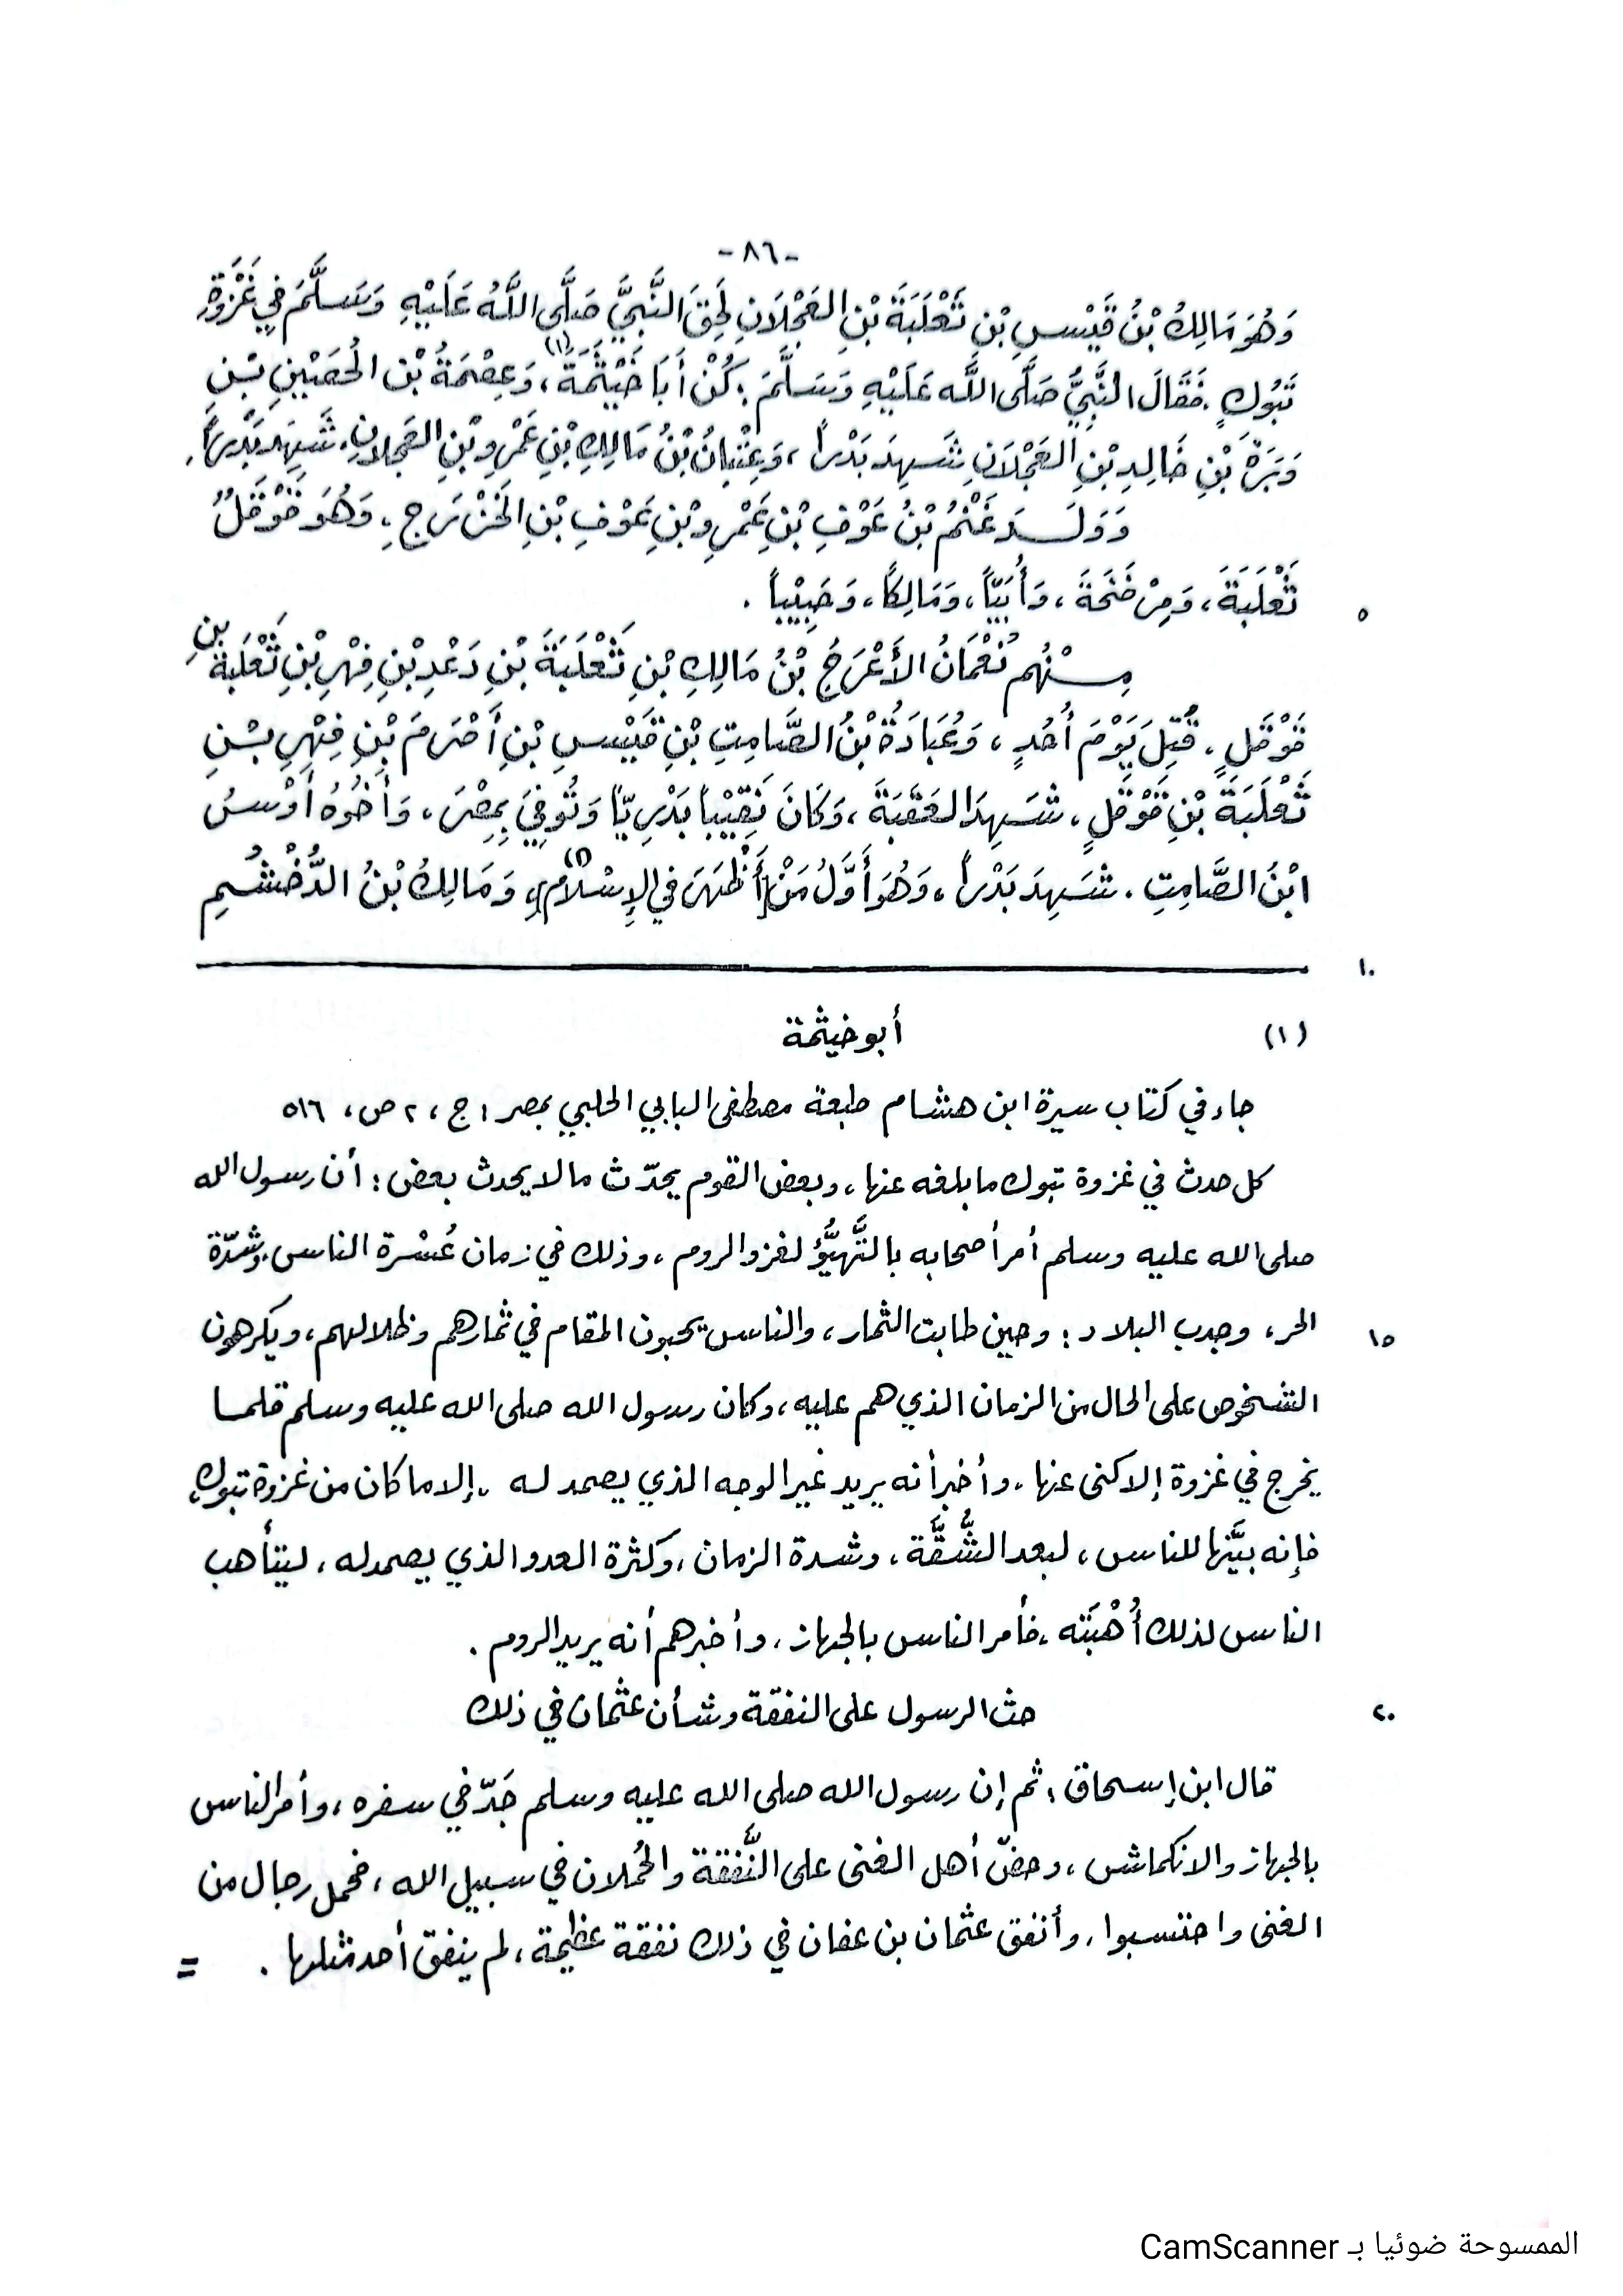 -٨٦-
وَهُوَ مَالِكُ بْنُ قَيْسِ بْنِ ثَعْلَبَةَ بْنِ العَجْلَانِ لَحِقَ النَّبِيَّ صَلَّى اللَّهُ عَلَيْهِ وَسَلَّمَ فِي غَزْوَةِ
تَبُوكٍ. فَقَالَ النَّبِيُّ صَلَّى اللَّه عَلَيْهِ وَسَلَّمَ: كُنْ أَبَا خَيْثَمَةَ(١)، وَعِصْمَةُ بْن الحُصَيْنِ بْنِ
وَبَرَةَ بْنِ خَالِدِ بْنِ العَجْلَانِ شَهِدَ بَدْراً، وَعِتْبَانُ بْنُ مَالِكِ بْنِ عَمْرِو بْنِ العَجْلانِ. شَهِدَ بَدْراً.
وَوَلَـدَ غَنْمُ بْنُ عَوْفِ بْنِ عَمْرِو بْنِ عَوْفِ بْنِ الخَزْرَجِ، وَهُوَ قَوْقَلٌ
ثَعْلَبَةَ، وَمِرْضَخَةَ، وَأُبَيّاً، وَمَالِكاً، وَحَبِيْباً.
٥
مِـنْهُم نُعْمَانُ الأَعْرَجُ بْنُ مَالِكِ بْنِ ثَعْلَبَةَ بْنِ دَعْدِ بْنِ فِهْرِ بْنِ ثَعْلَبَةَ بنِ
قَوْقَلٍ. قُتِلَ يَوْمَ أُحُدٍ، وَعُبَادَةُ بْنُ الصَّامِتِ بْنِ قَيْسِ بْنِ أَصْرَمَ بْنِ فِهْرِ بْنِ
ثَعْلَبَةَ بْنِ قَوْقَلٍ، شَهِدَ العَقَبَةَ، وَكَانَ نَقِيْباً بَدْرِيّاً وَتُوفِيَ بِمِصْرَ، وَأَخُوهُ أَوْسُ
ابْنُ الصَّامِتِ. شَهِدَ بَدْراً، وَهُوَ أَوَّلُ مَنْ [أَظْهَرَ فِي الإِسْلَامِ](٢)، وَمَالِكُ بْنُ الدُّخْشُمِ
١٠
(١) أبو خيثمة
جاء في كتاب سيرة ابن هشام طبعة مصطفى البابي الحلبي بمصر : ج، ٢ ص، ٥١٦
كل حدث في غزوة تبوك ما بلغه عنها، وبعض القوم يحدّث ما لا يحدث بعض: أن رسول الله
صلى الله عليه وسلم أمر أصحابه بالتَّهيُّؤ لغزو الروم، وذلك في زمان عُسْرة الناس، وشدّة
الحر، وجدب البلاد: وحين طابت الثمار، والناس يحبون المقام في ثمارهم وظلالهم، ويكرهون
١٥
الشخوص على الحال من الزمان الذي هم عليه، وكان رسول الله صلى الله عليه وسلم قلمـا
يخرج في غزوة إلا كنى عنها، وأخبر أنه يريد غير الوجه الذي يصمد له، إلا ما كان من غزوة تبوك،
فإنه بيَّنها للناس، لبعد الشُّقَّة، وشدة الزمان، وكثرة العدو الذي يصمد له، ليتأهب
الناس لذلك أُهْبَتَه، فأمر الناس بالجهاز، وأخبرهم أنه يريد الروم.
حث الرسول على النفقة وشأن عثمان في ذلك
٢٠
قال ابن إسحاق: ثم إن رسول الله صلى الله عليه وسلم جَدّ في سفره، وأمر الناس
بالجهاز والانكماش، وحضّ أهل الغنى على النَّفقة والحُملان في سبيل الله، فحمل رجال من
الغنى واحتسبوا، وأنفق عثمان بن عفان في ذلك نفقة عظيمة، لم ينفق أحد مثلها. =
الممسوحة ضوئيا بـ CamScanner